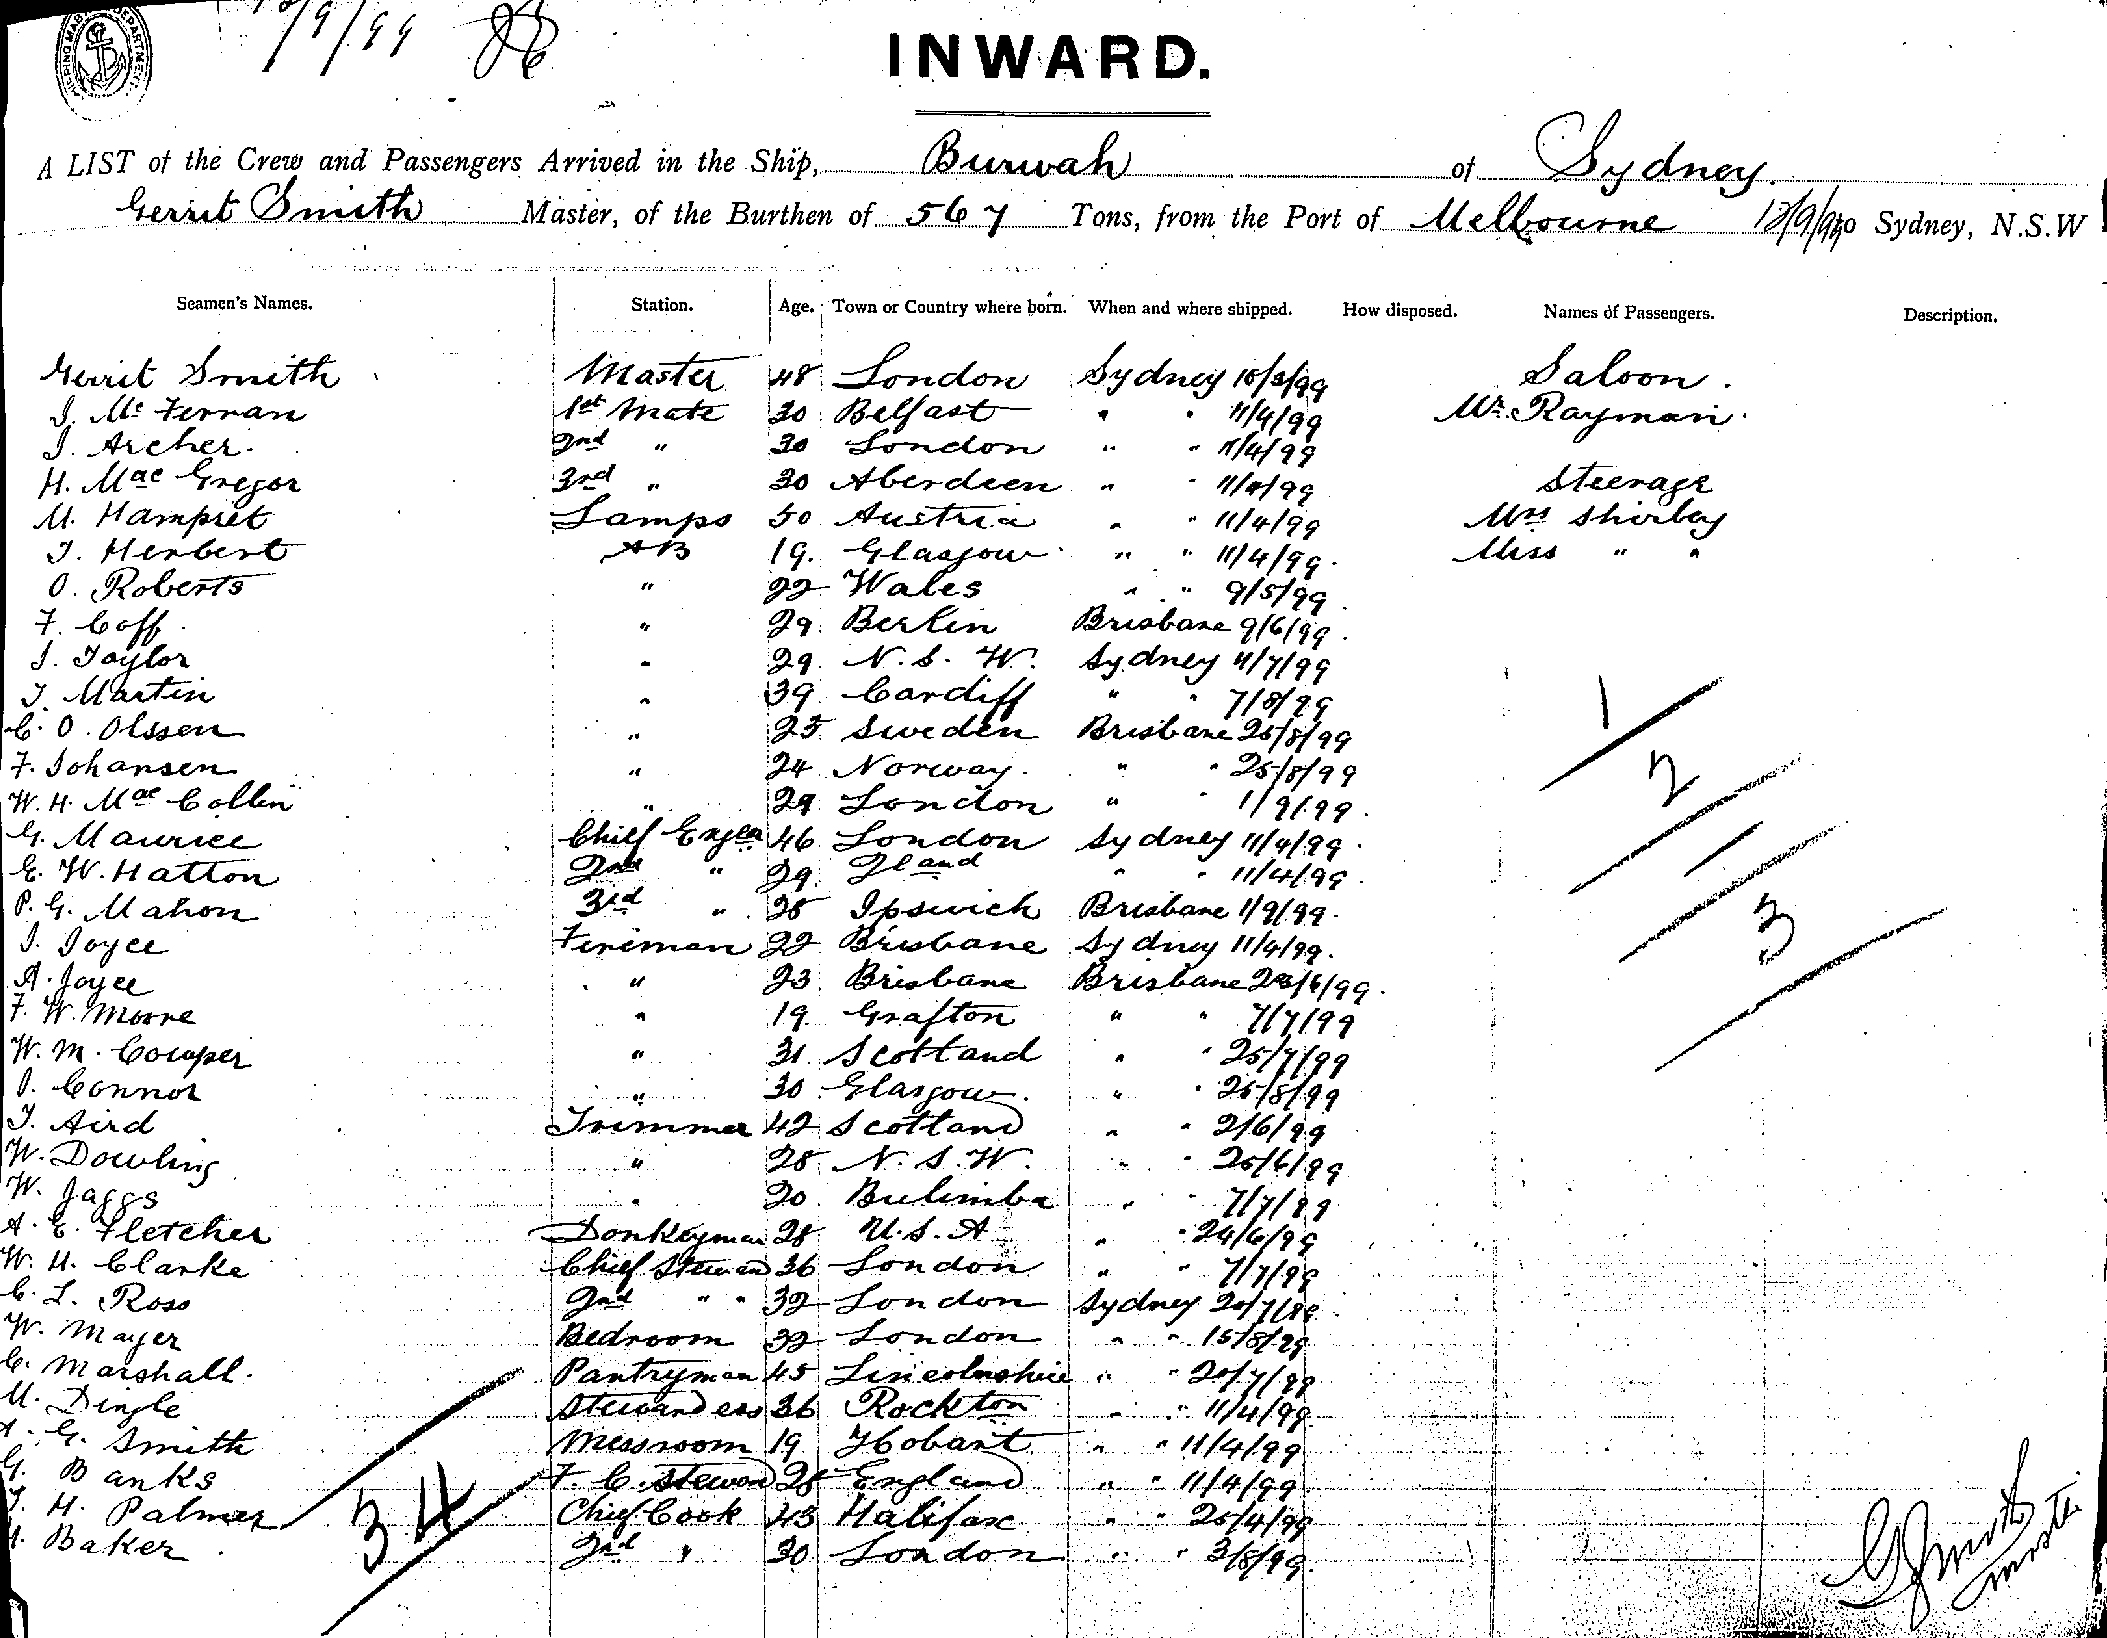 12/9/99
INWARD.
A LIST of the Crew and Passengers Arrived in the Ship, Burwah of Sydney.
Gerrit Smith Master, of the Burthen of 567 Tons, from the Port of Melbourne 12/9/99 to Sydney, N.S.W
Seamen's Names. Station. Age. Town or Country where born. When and where shipped. How disposed. Names of Passengers. Description.
Gerrit Smith Master 48 London Sydney 10/3/99 Saloon.
J. Mc Ferran 1st Mate 30 Belfast " " 11/4/99 Mr. Rayman.
J. Archer. 2nd " 30 London " " 11/4/99
H. Mac Gregor 3rd " 30 Aberdeen " " 11/4/99 Steerage
M. Hampret Lamps 50 Austria " " 11/4/99 Mrs Shirley
J. Herbert AB 19. Glasgow " " 11/4/99. Miss " "
O. Roberts " 22 Wales " " 9/5/99
F. Goff. " 29. Berlin Brisbane 9/6/99.
J. Taylor " 29. N.S.W. Sydney 11/7/99
J. Martin " 39 Cardiff " " 7/8/99
C. O. Olssen " 25 Sweden Brisbane 25/8/99
F. Johansen " 24 Norway. " " 25/8/99
W. H. Mac Collin " 29 London " " 1/9/99.
G. Maurice Chief Engeer 46 London Sydney 11/4/99.
E. W. Hatton 2nd " 29. " " 11/4/99.
P. G. Mahon 3rd " 28 Ipswich Brisbane 1/9/99.
J. Joyce Fireman 22 Brisbane Sydney 11/4/99.
A. Joyce " 23 Brisbane Brisbane /6/99.
F. W. Moore " 19 Grafton " " 7/7/99
W. M. Cowper " 31 Scotland " " 25/7/99
J. Connor " 30 Glasgow. " " 25/8/99
J. Aird Trimmer 42 Scotland " " 2/6/99
W. Dowling " 28 N.S.W. " " 25/6/99
W. Jaggs " 20 Bulimba " " 7/7/99
A. E. Fletcher Donkeyman 28 U.S.A " " 24/6/99
W. H. Clarke Chief Steward 36 London " " 7/7/99
C. L. Ross 2nd " " 32 London Sydney 20/7/99
W. Mayer Bedroom 32 London " " 15/8/99
C. Marshall. Pantryman 45 Lincolnshire " " 20/7/99
M. Dingle Stewardess 36 Rockton " " 11/4/99
A. G. Smith Messroom 19 Hobart " " 11/4/99
G. Banks F. C. Steward 28 England " " 11/4/99
J. H. Palmer Chief Cook 43 Halifax " " 25/4/99
H. Baker 2nd " 30 London " " 3/8/99.
1
2
3
34
G Smith
Master